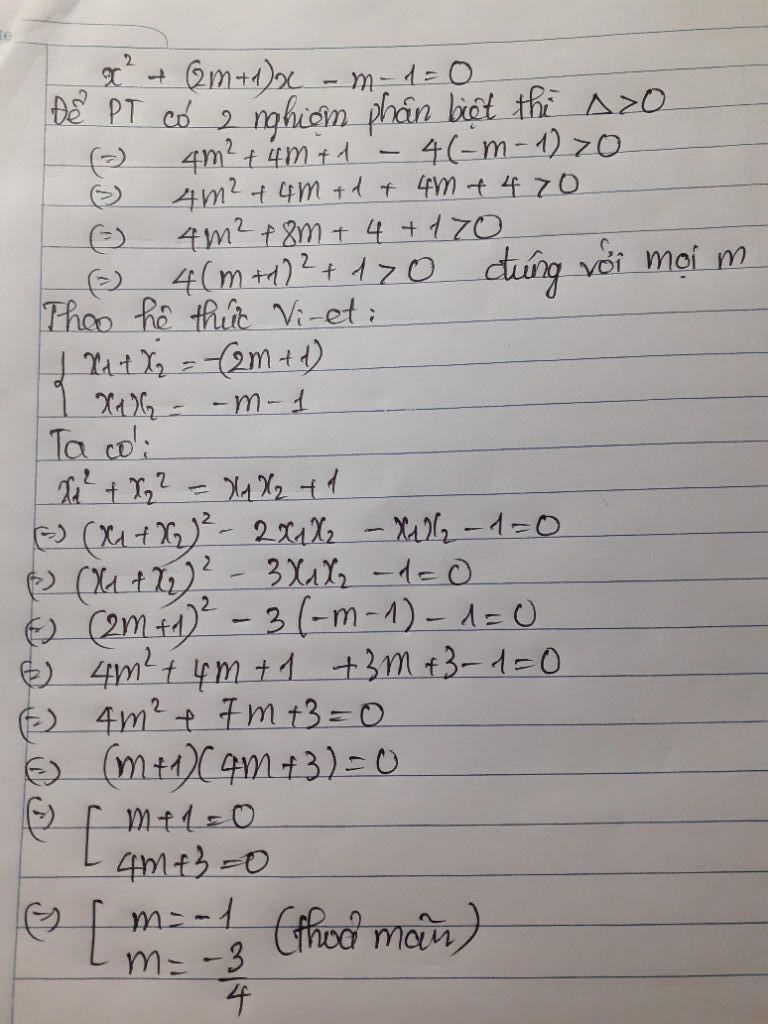 x² + (2m+1)x - m - 1 = 0
Để PT có 2 nghiệm phân biệt thì Δ > 0
(=) 4m² + 4m + 1 - 4(-m - 1) > 0
(=) 4m² + 4m + 1 + 4m + 4 > 0
(=) 4m² + 8m + 4 + 1 > 0
(=) 4(m+1)² + 1 > 0 đúng với mọi m
Theo hệ thức Vi-et:
{ x₁ + x₂ = -(2m+1)
x₁x₂ = -m - 1
Ta có:
x₁² + x₂² = x₁x₂ + 1
(=) (x₁ + x₂)² - 2x₁x₂ - x₁x₂ - 1 = 0
(=) (x₁ + x₂)² - 3x₁x₂ - 1 = 0
(=) (2m+1)² - 3(-m-1) - 1 = 0
(=) 4m² + 4m + 1 + 3m + 3 - 1 = 0
(=) 4m² + 7m + 3 = 0
(=) (m+1)(4m+3) = 0
(=) [ m+1 = 0
4m+3 = 0
(=) [ m = -1 (thoả mãn)
m = -3/4